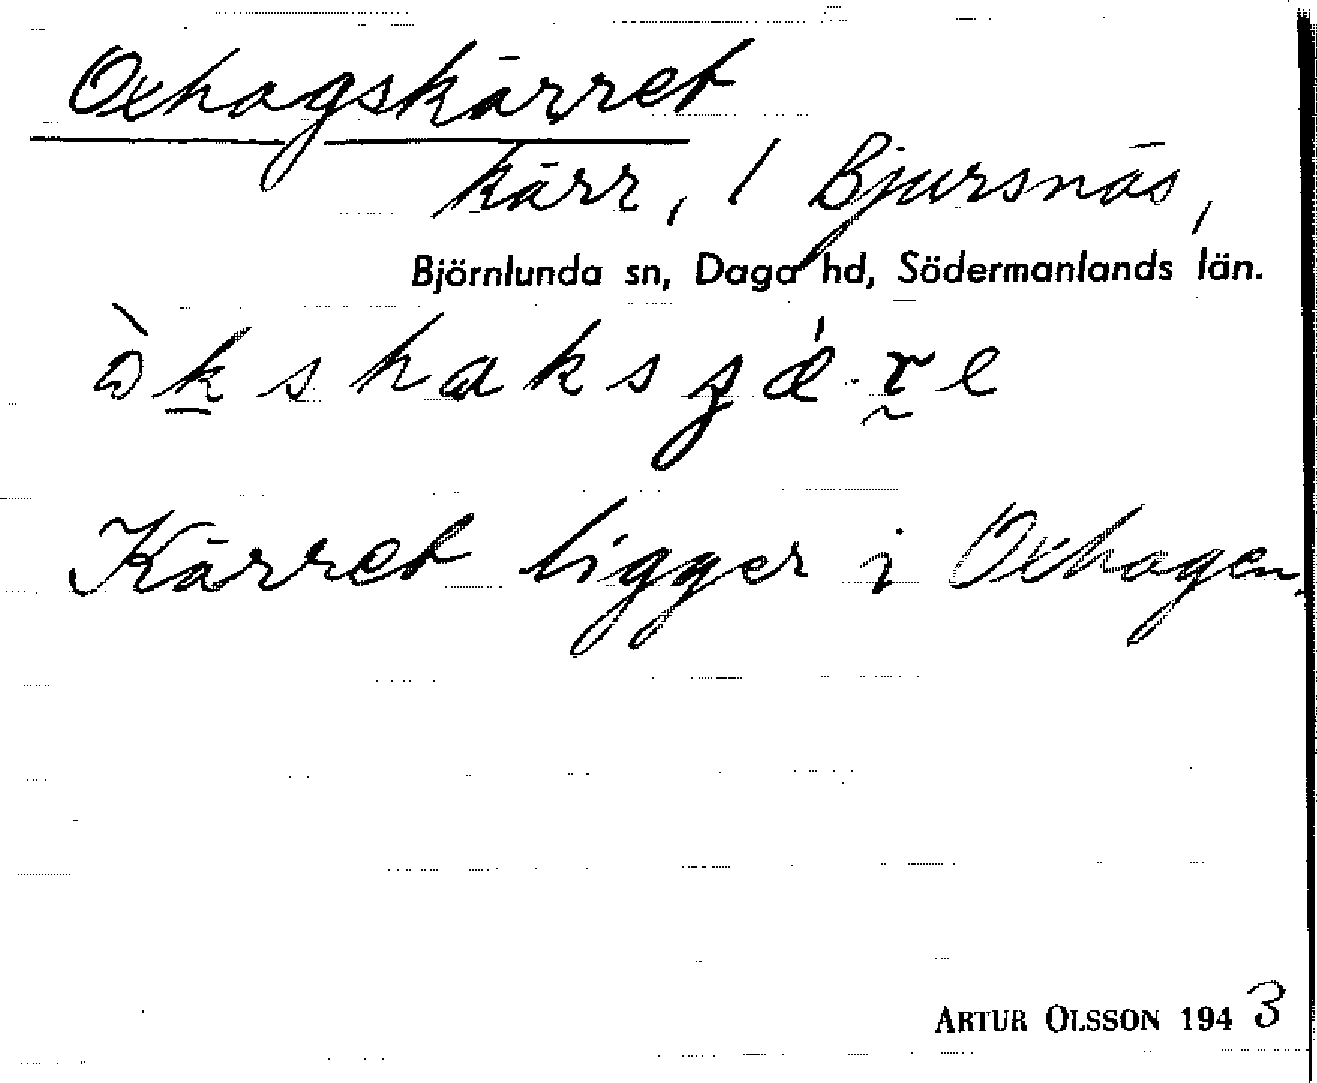 Oxhagskärret
kärr, / Bjursnäs,
Björnlunda sn, Daga hd, Södermanlands län.
Kärret ligger i Oxhagen.
ARTUR OLSSON 1943